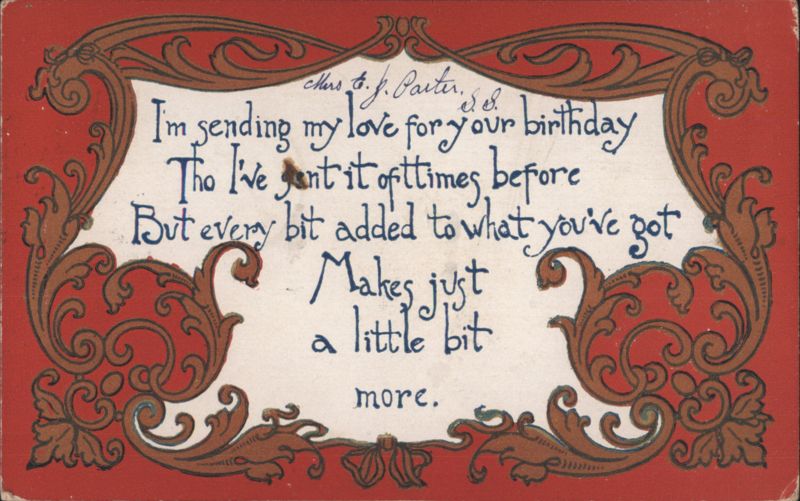 Mrs E. J. Porter,
S.S.
I'm sending my love for your birthday
Tho I've sent it ofttimes before
But every bit added to what you've got
Makes just
a little bit
more.